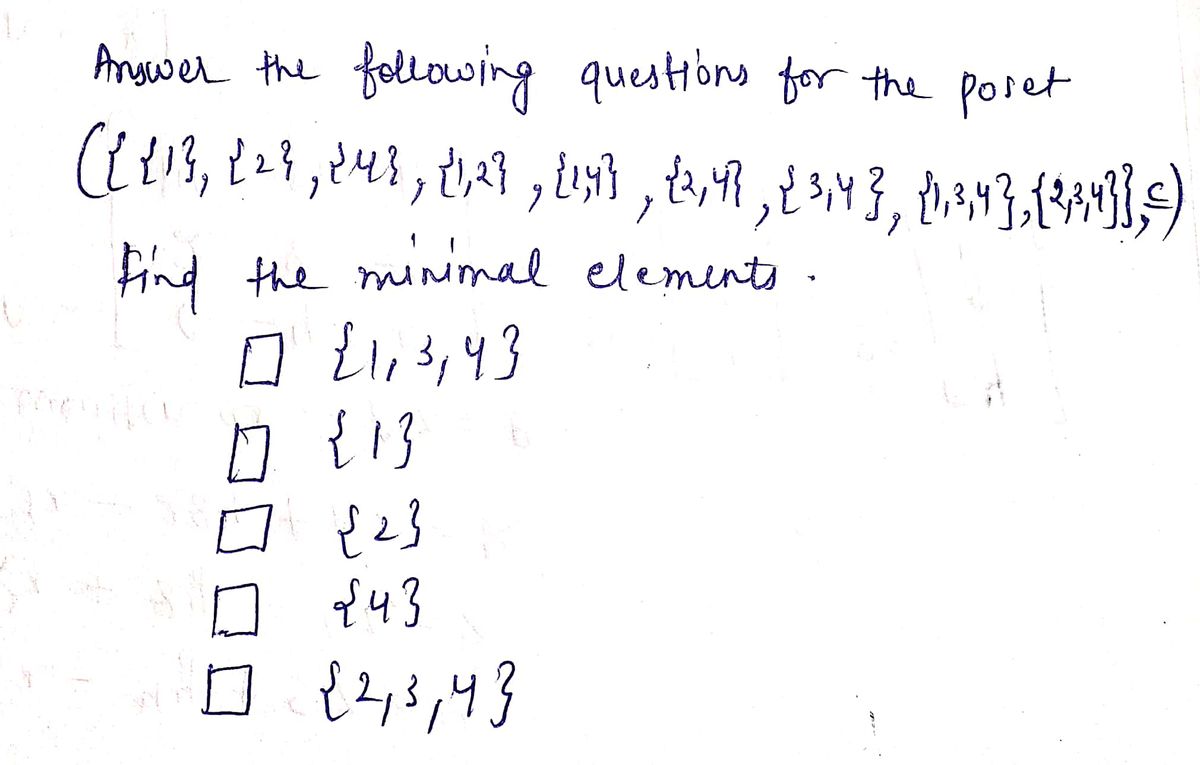 Answer the following questions for the poset
({{1}, {2}, {4}, {1,2}, {1,4}, {2,4}, {3,4}, {1,3,4}, {2,3,4}}, ⊆)
Find the minimal elements.
□ {1, 3, 4}
□ {1}
□ {2}
□ {4}
□ {2, 3, 4}